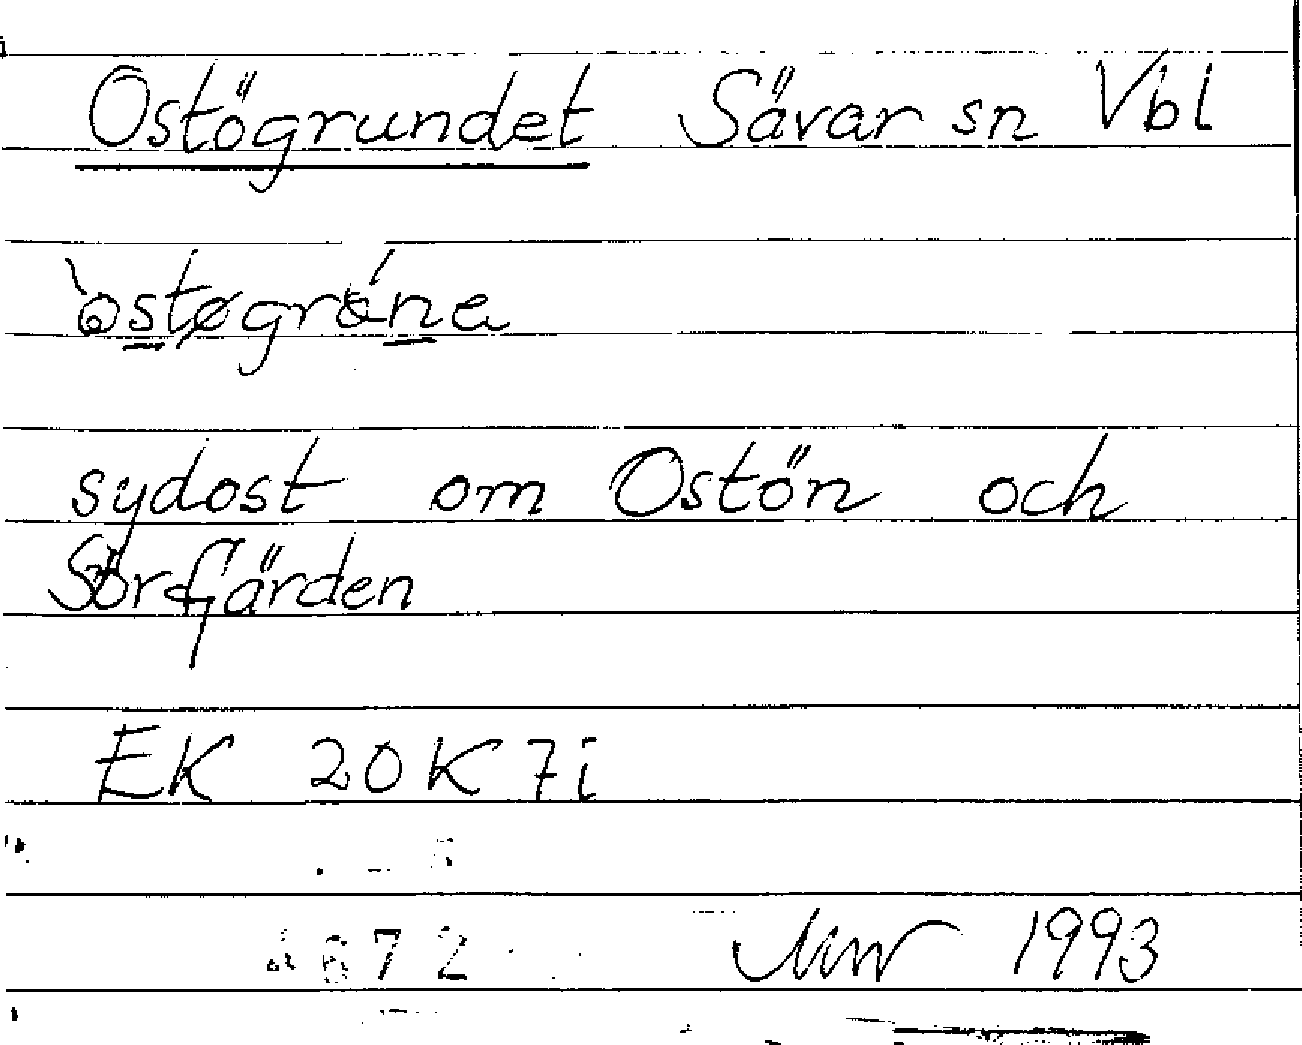 Ostögrundet Sävar sn Vbl
sydost om Ostön och
Sörfjärden
EK 20K 7i
672
1993